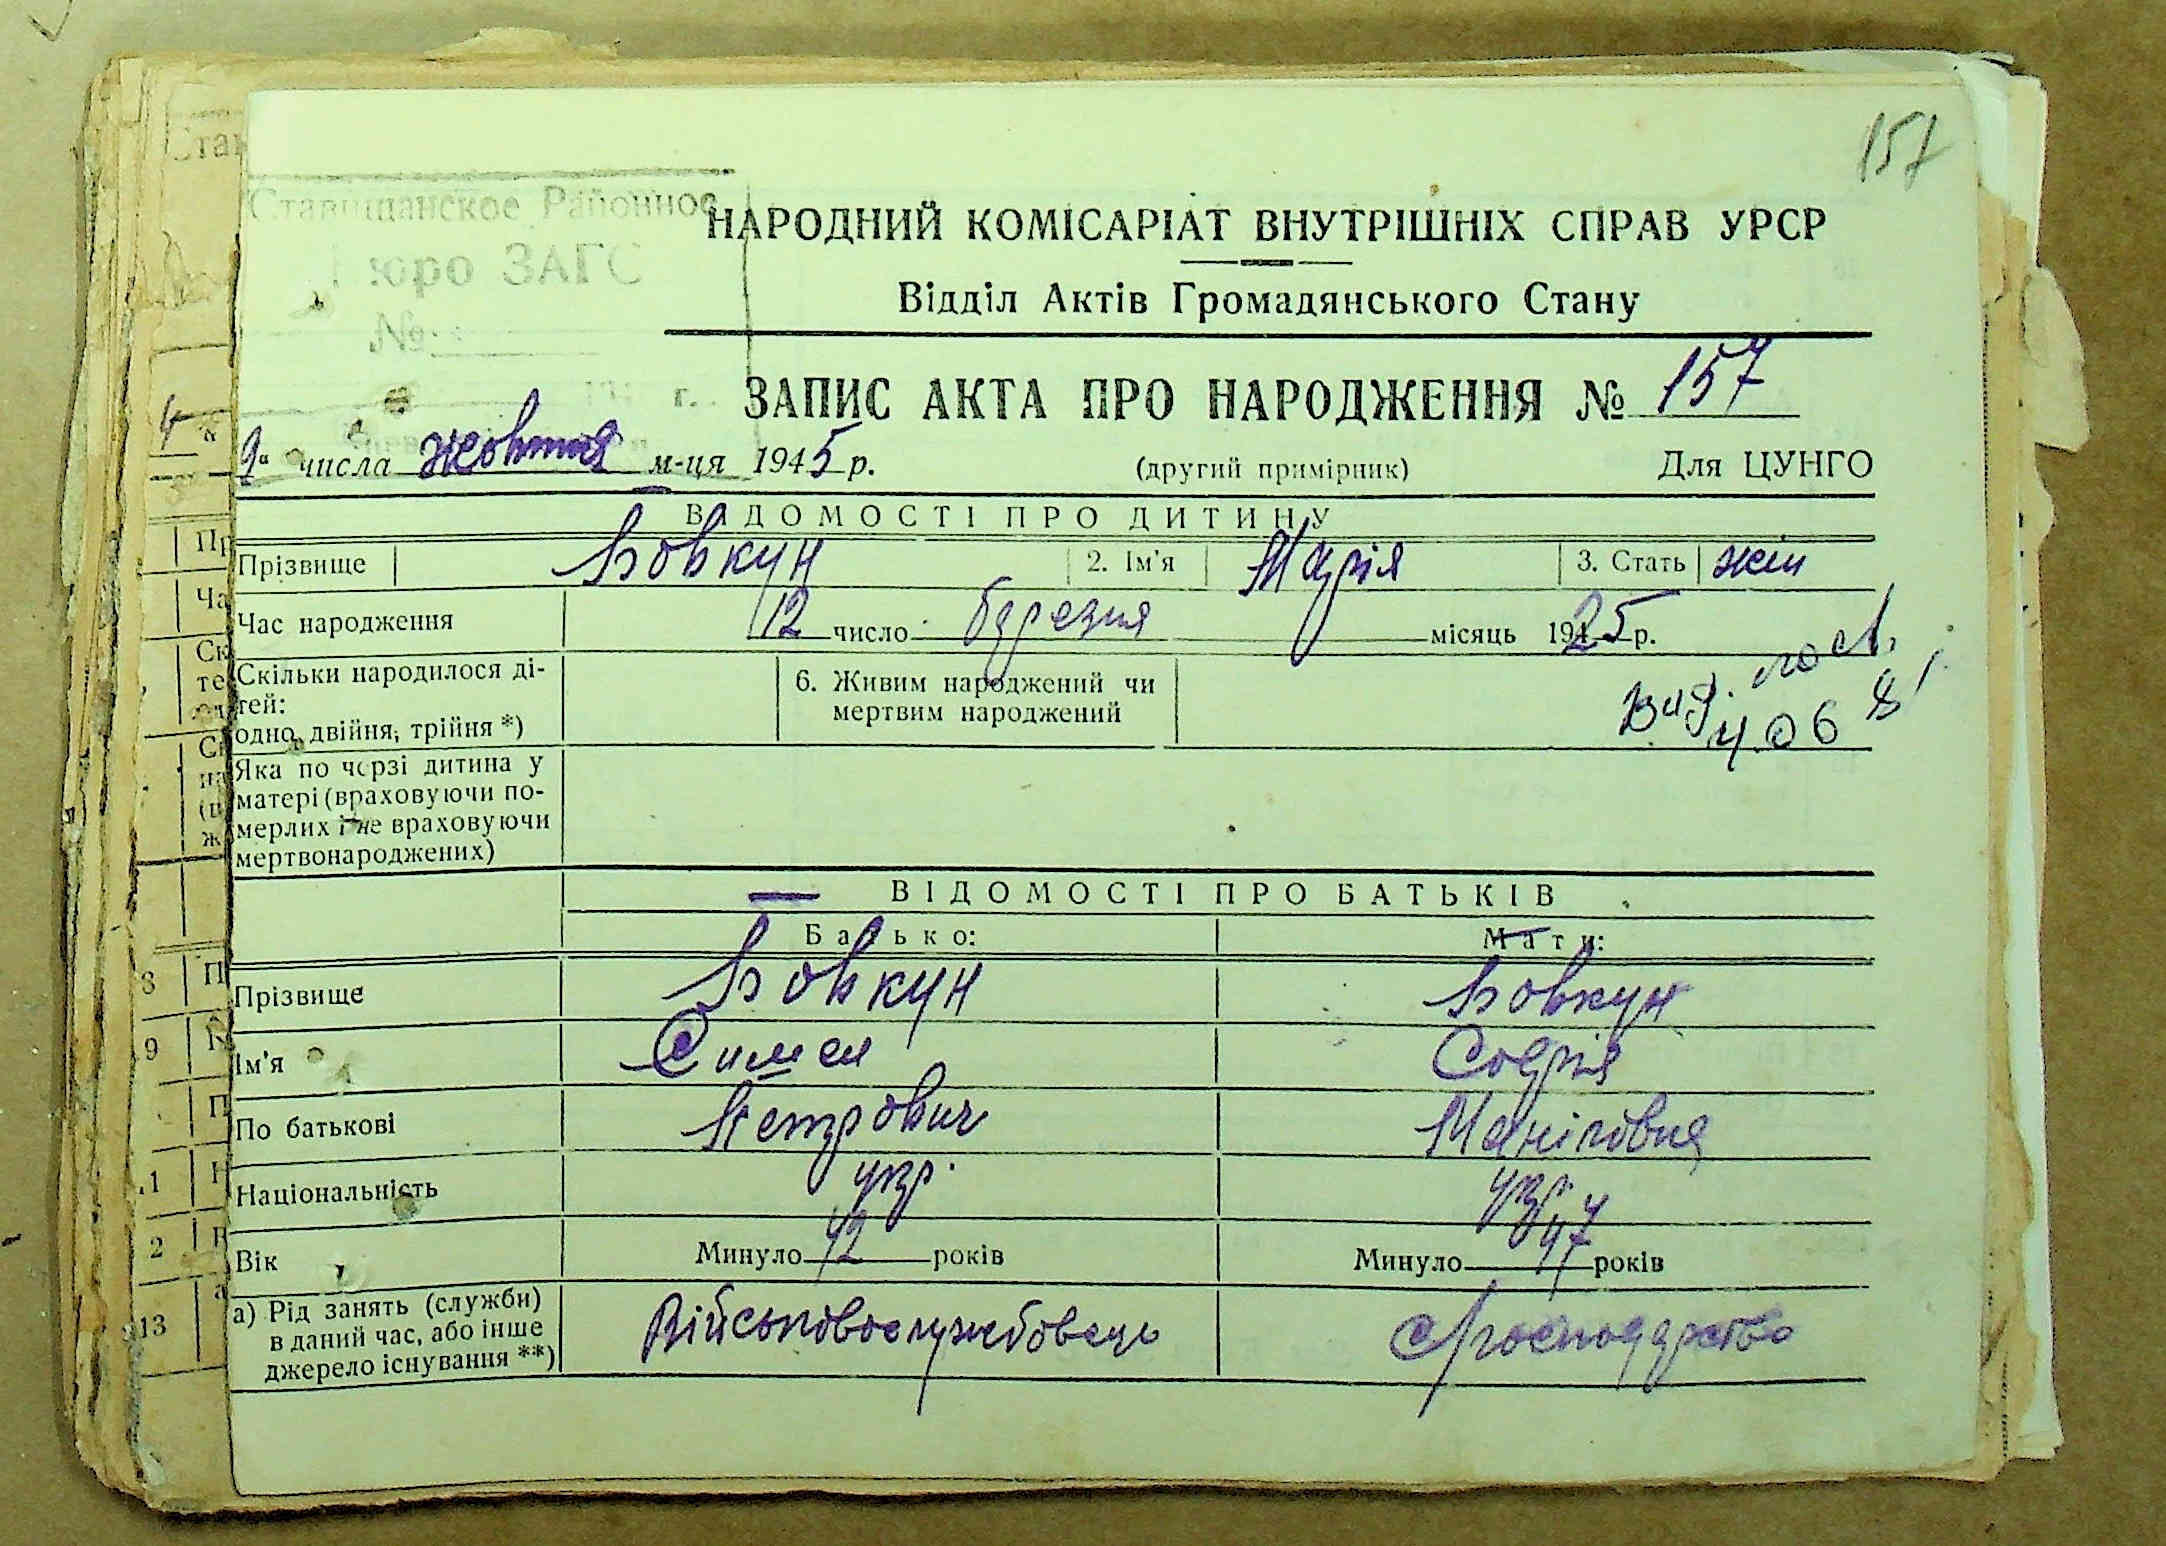 157
Ставищанское Районное
Бюро ЗАГС
№
г.
НАРОДНИЙ КОМІСАРІАТ ВНУТРІШНІХ СПРАВ УРСР
Відділ Актів Громадянського Стану
ЗАПИС АКТА ПРО НАРОДЖЕННЯ № 157
числа жовтня м-ця 1945 р. (другий примірник) Для ЦУНГО
ВІДОМОСТІ ПРО ДИТИНУ
Прізвище Бовкун 2. Ім'я Марія 3. Стать жін
Час народження 12 число березня місяць 1925 р.
Скільки народилося ді-
тей:
одно, двійня, трійня *)
6. Живим народжений чи
мертвим народжений
Яка по черзі дитина у
матері (враховуючи по-
мерлих і не враховуючи
мертвонароджених)
ВІДОМОСТІ ПРО БАТЬКІВ
Батько: Мати:
Прізвище Бовкун Бовкун
Ім'я Симен Софія
По батькові Петрович
Національність укр. укр
Вік Минуло 42 років Минуло 47 років
а) Рід занять (служби)
в даний час, або інше
джерело існування **)
Військовослужбовець господарство